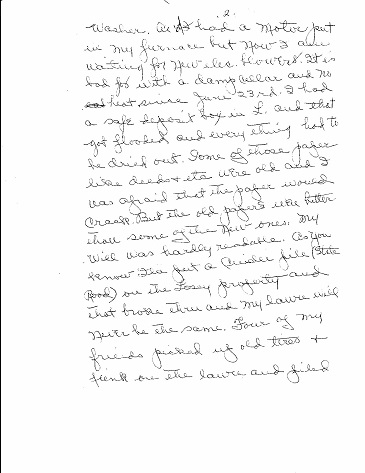 2.
Washer. Also had a Motor put
in my furnace but now I am
waiting for new elec. blowers. It is
bad for with a damp cellar and no
heat since June 23rd. I had
a safe deposit box in L. and that
got flooded and every thing had to
be dried out. Some of those paper
like deeds + etc were old and I
was afraid that the paper would
crack. But the old papers were better
than some of the new ones. My
Will was hardly readable. As you
know I've put a cinder file (State
Road) on the Losey property and
that broke thru and my lawn will
never be the same. Four of my
friends picked up old tires +
junk on the lawn and filed